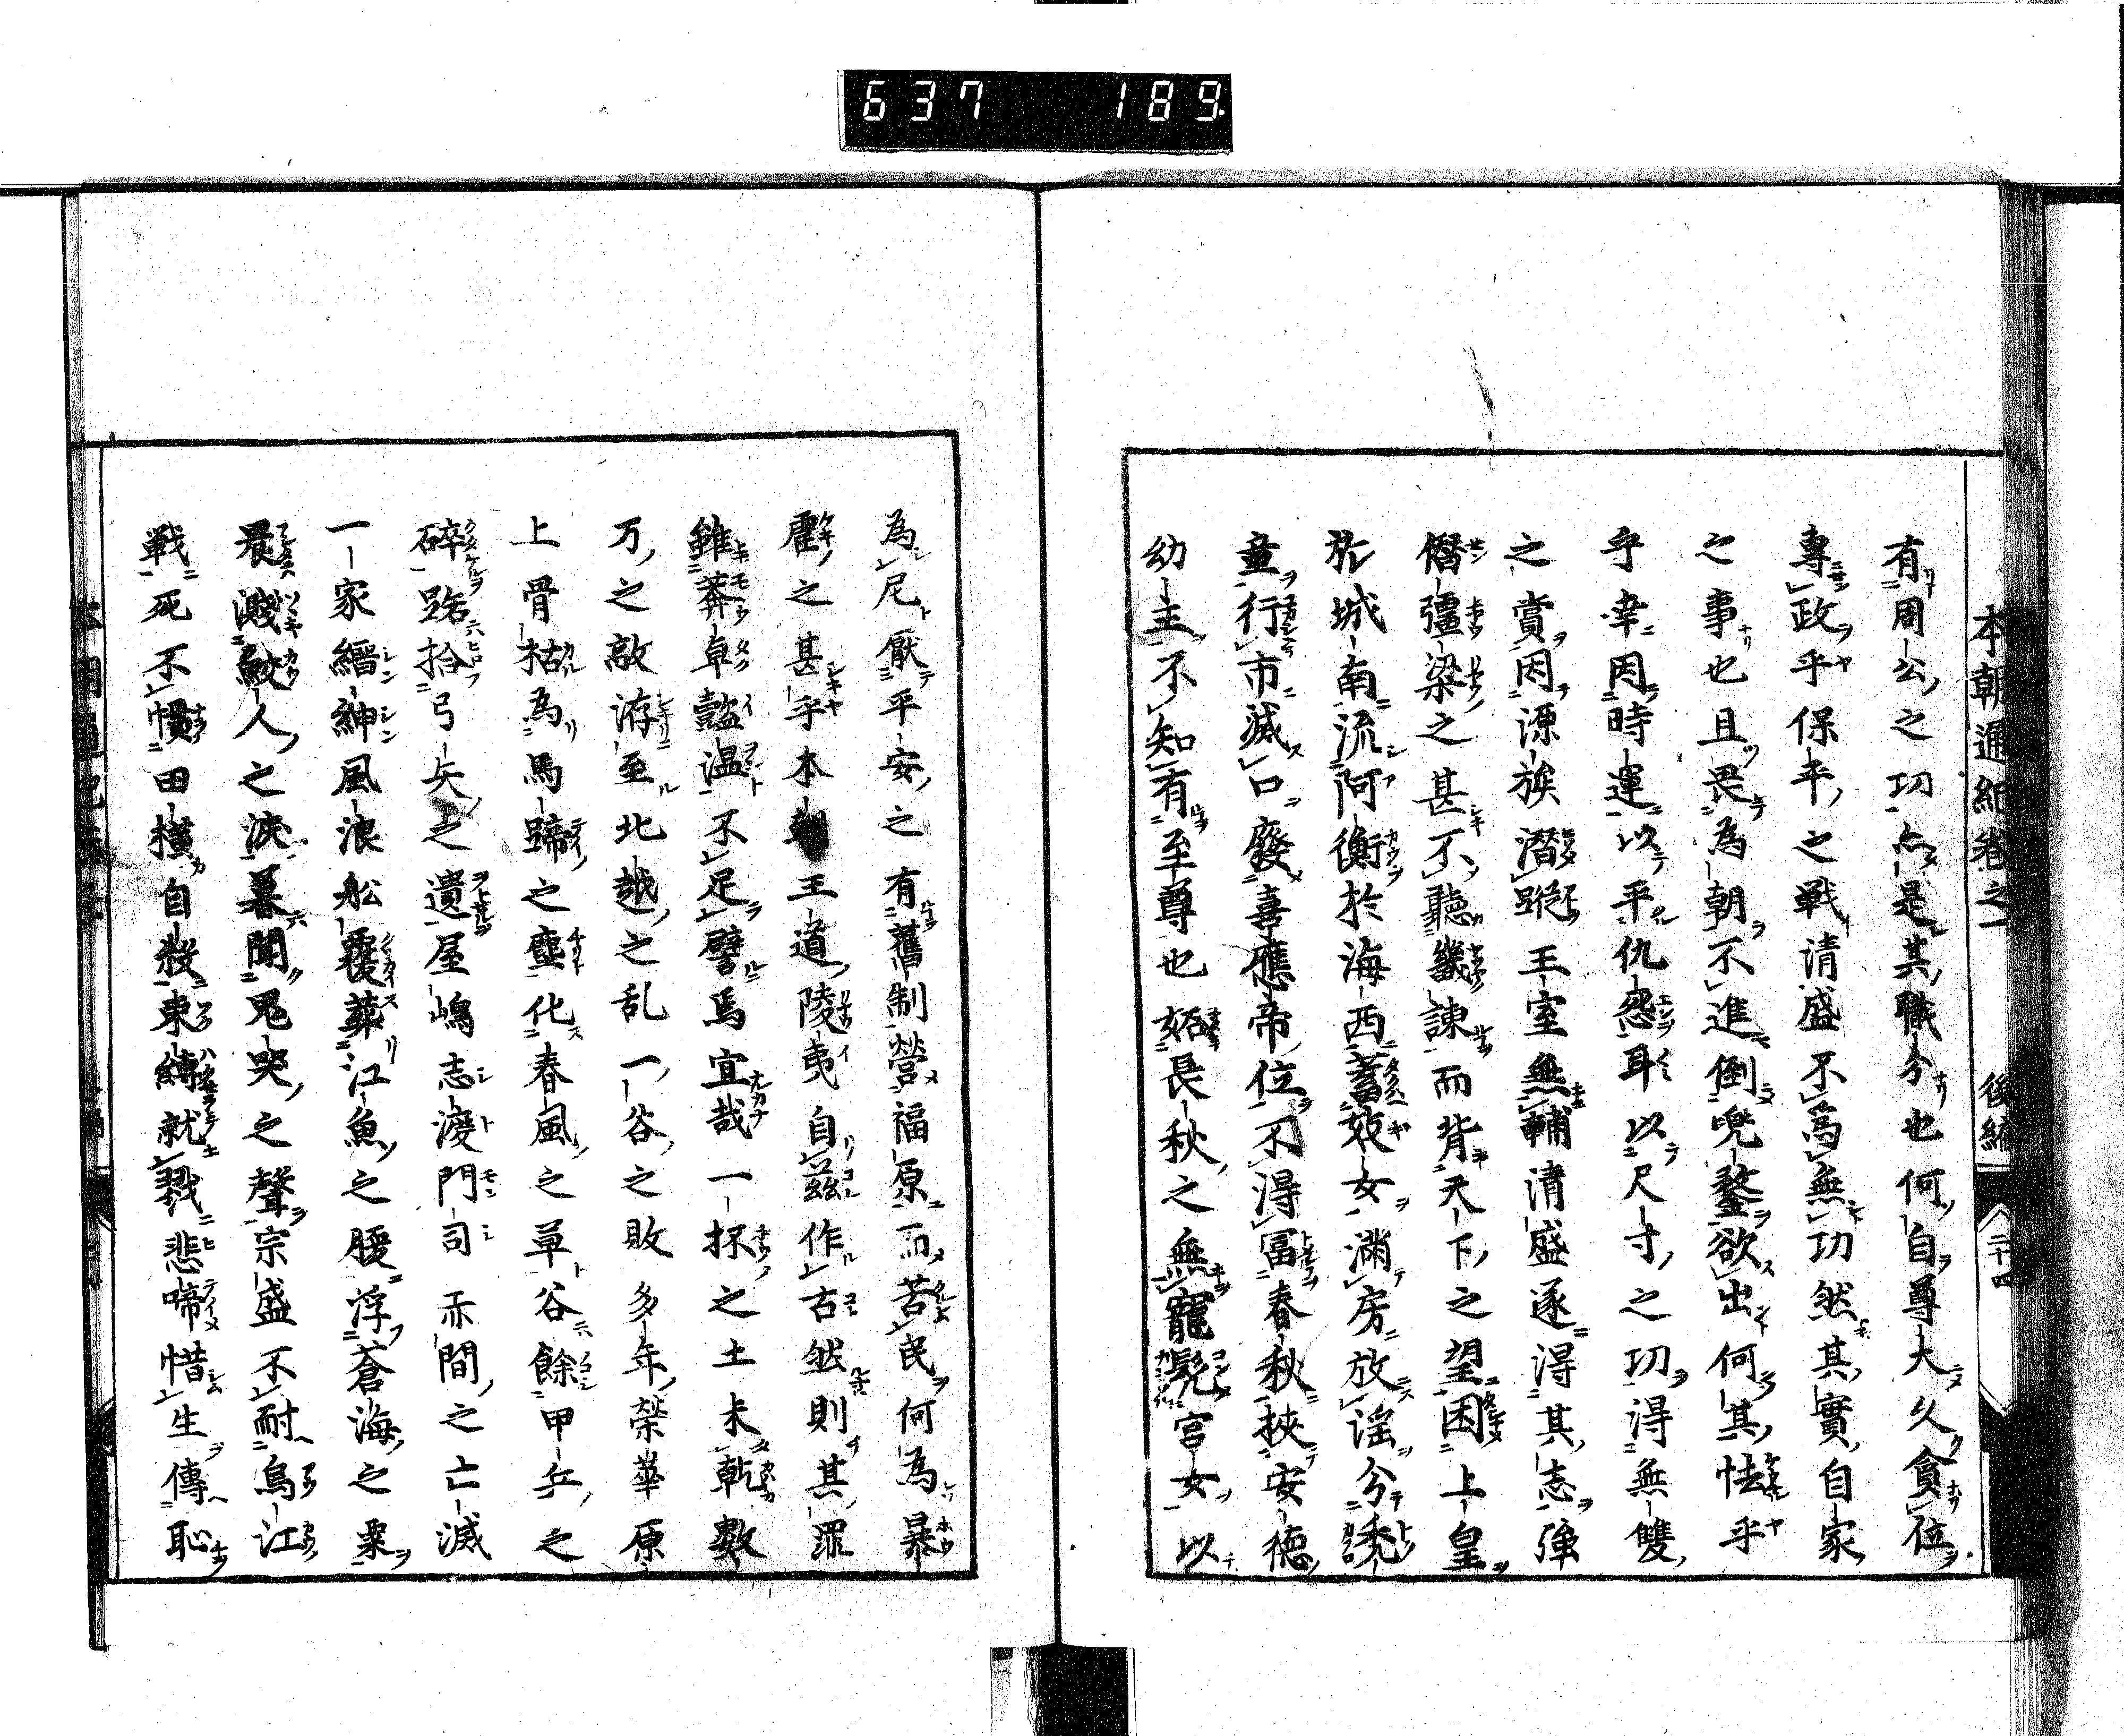 637 189
本朝通紀卷之一 後編 二十四
有周公之功亦是其職分也何自尊大久貪位
專政乎保平之戰清盛不為無功然其實自家
之事也且畏為朝不進倒兜鍪欲出何其怯乎
乎幸因時運以平仇怨耳以尺寸之功得無雙
之賞因源族潛蹤王室無輔清盛遂得其志強
僭彊梁之甚不聽幾諫而背天下之望困上皇
於城南流阿衡於海西蓄妓女滿房放謡分禿
童行市滅口廢喜應帝位不得冨春秋挾安德
幼主不知有至尊也妬長秋之無寵髡宮女以
為尼厭平安之有舊制營福原而苦民何為暴
之甚乎本朝王道陵夷自茲作古然則其罪
雖莽卓懿温不足譬焉宜哉一抔之土未乾數
万之敵洊至北越之乱一谷之敗多年榮華原
上骨枯為馬蹄之塵化春風之草谷餘甲兵之
碎踣拾弓矢之遺屋嶋志渡門司赤間之亡滅
一家縉紳風浪舩覆葬江魚之腹浮蒼海之粟
晨濺鮫人之淚暮聞鬼哭之聲宗盛不耐烏江
戰死不慣田横自殺束縛就戮悲啼惜生傳恥